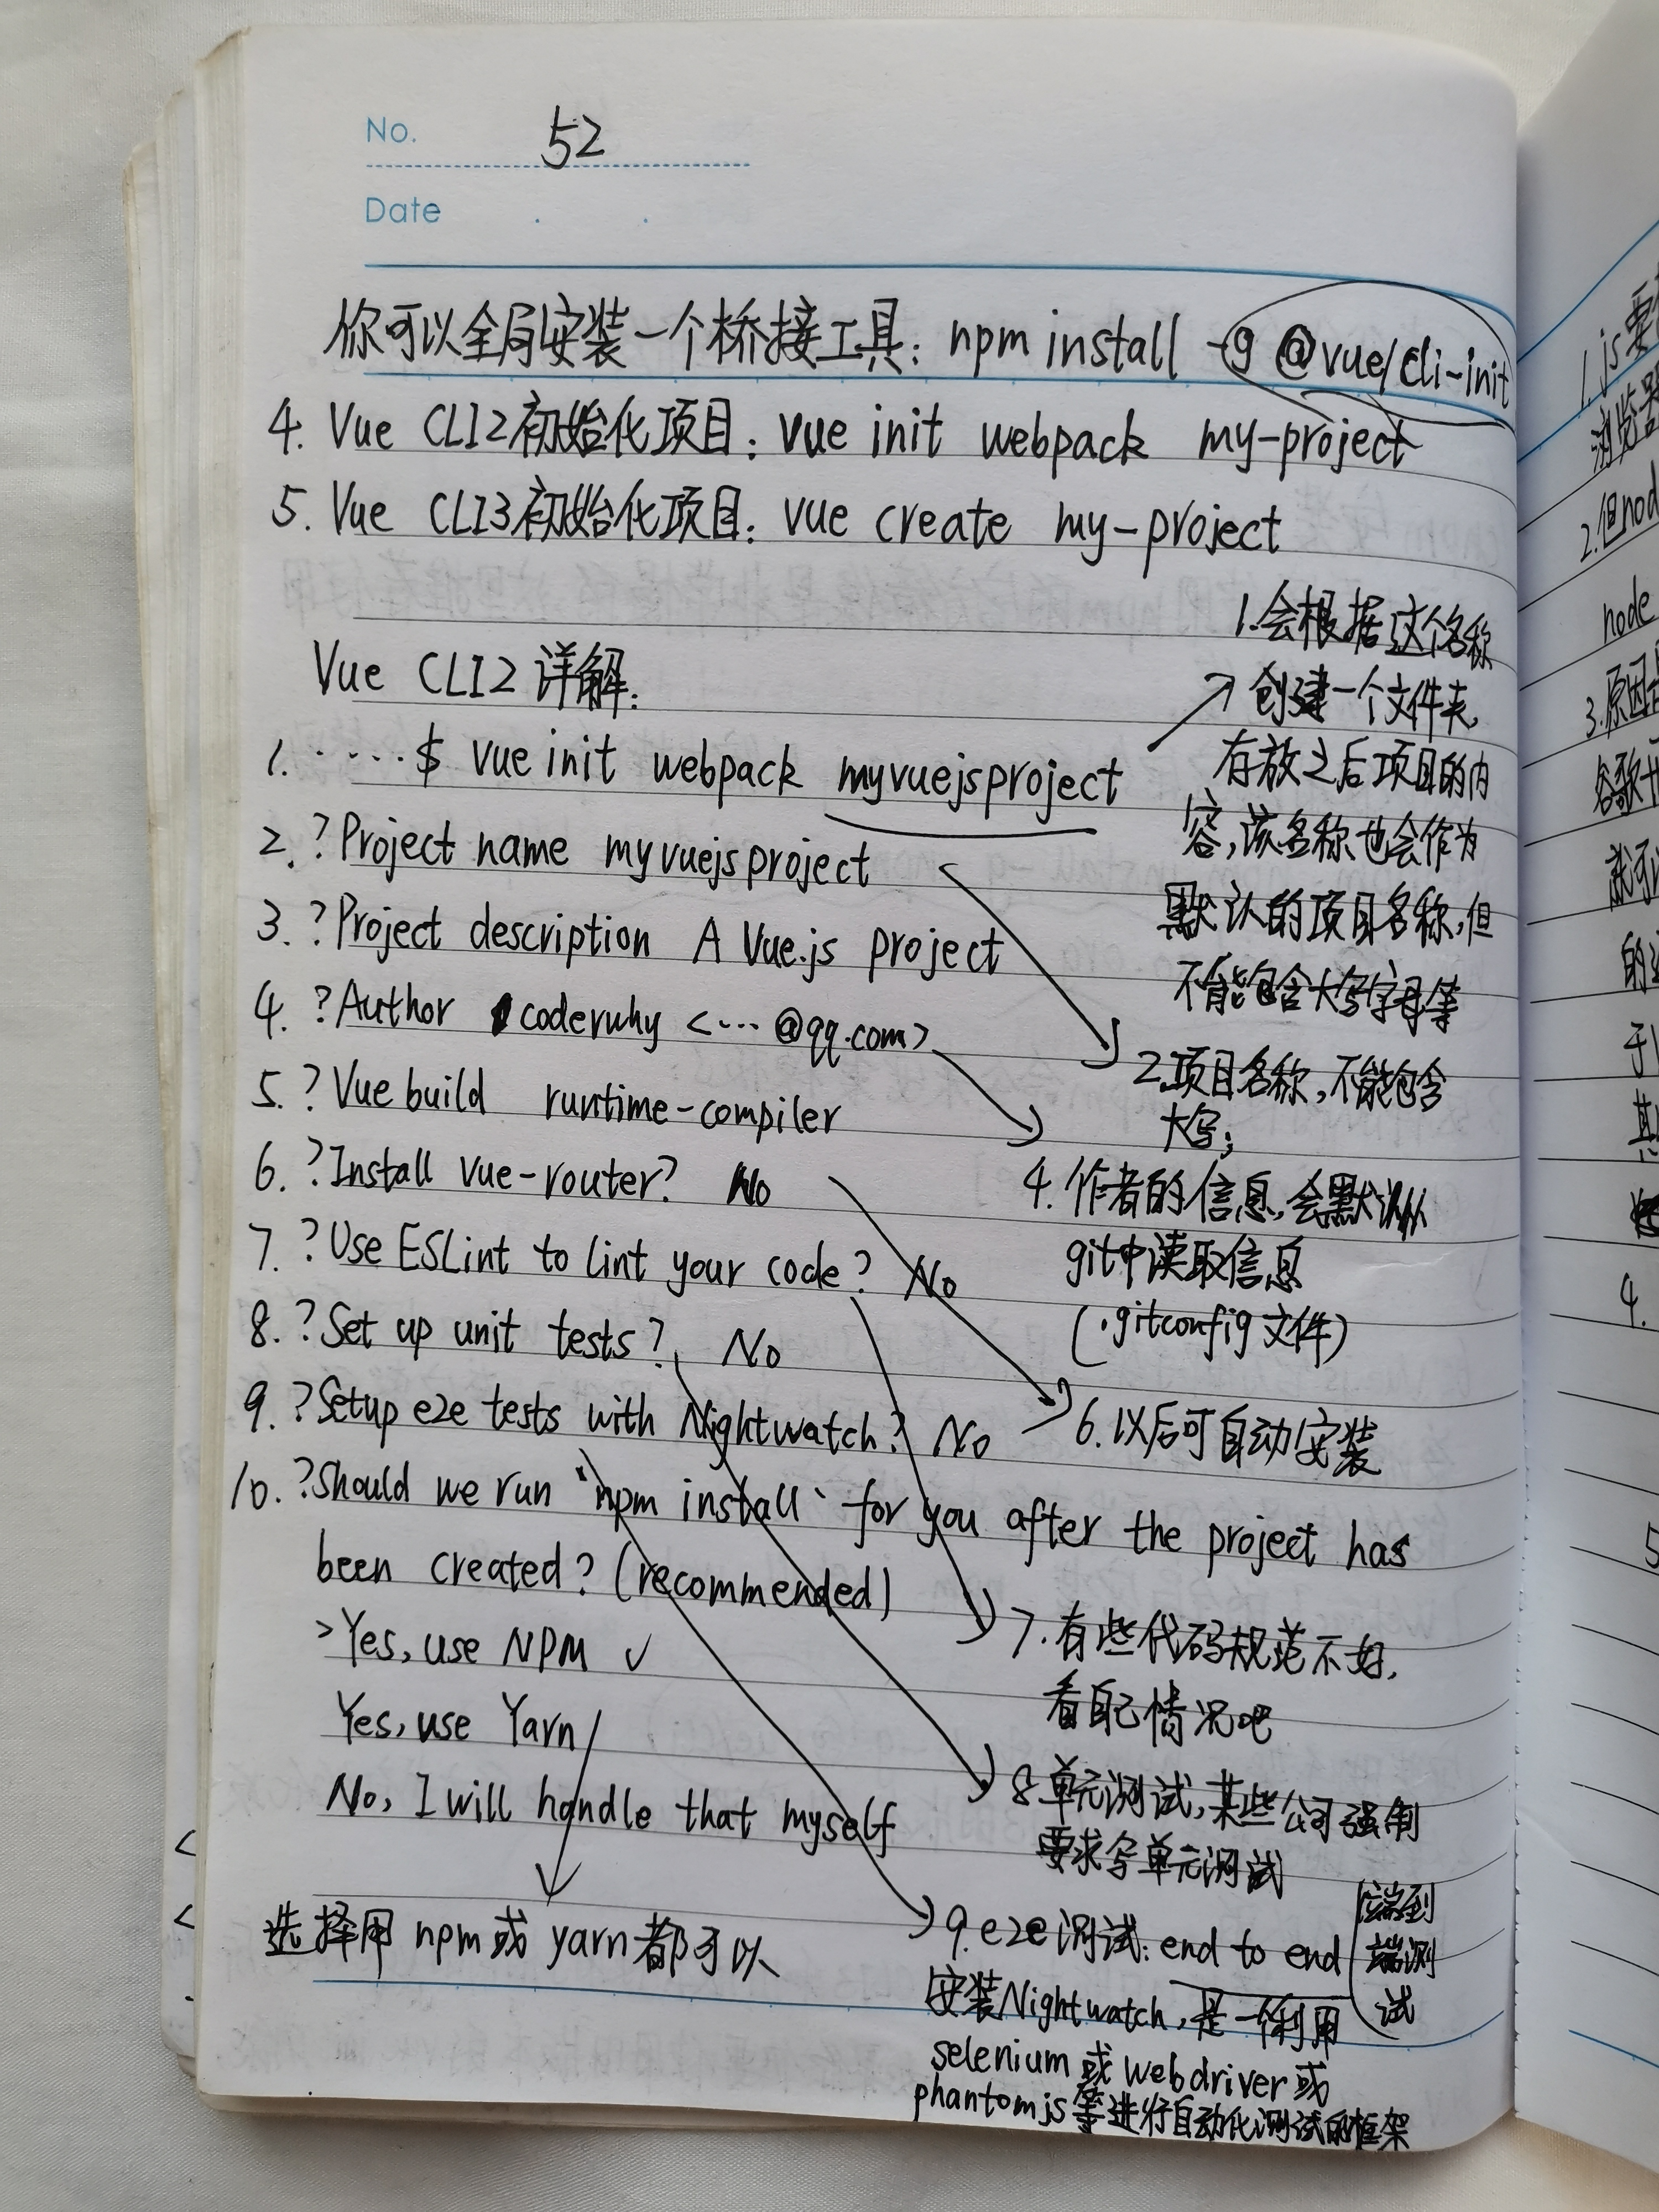 No. 52
Date
你可以全局安装一个桥接工具: npm install -g @vue/cli-init
4. Vue CLI2初始化项目: vue init webpack my-project
5. Vue CLI3初始化项目: vue create my-project
Vue CLI2 详解:
1. ·····$ vue init webpack myvuejsproject
2. ?Project name myvuejsproject
3. ?Project description A Vue.js project
4. ?Author coderwhy <···@qq.com>
5. ?Vue build runtime-compiler
6. ?Install vue-router? No
7. ?Use ESLint to lint your code? No
8. ?Set up unit tests? No
9. ?Setup e2e tests with Nightwatch? No
10. ?Should we run `npm install` for you after the project has
been created? (recommended)
>Yes, use NPM ✓
Yes, use Yarn
No, I will handle that myself
选择用 npm或 yarn都可以
1.会根据这个名称
创建一个文件夹,
存放之后项目的内
容,该名称也会作为
默认的项目名称,但
不能包含大写字母等
2.项目名称,不能包含
大写;
4.作者的信息,会默认从
git中读取信息
(.gitconfig文件)
6.以后可自动安装
7.有些代码规范不好,
看自己情况吧
8.单元测试,某些公司强制
要求写单元测试
9.e2e测试: end to end
端到
端测
试
安装Nightwatch,是一个利用
selenium或webdriver或
phantomjs等进行自动化测试的框架
1.js要
浏览器
2.但nod
node
3.原因
谷歌
的
于
其
4.
5